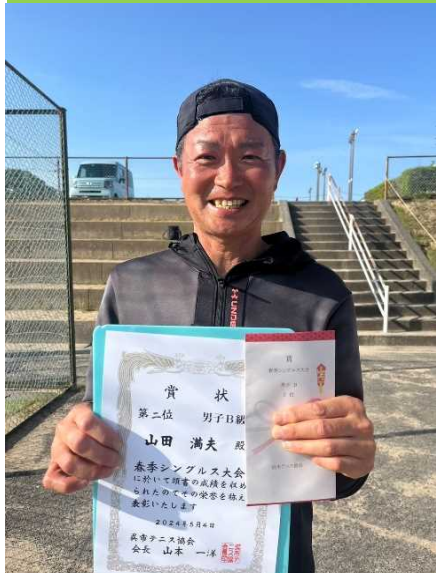 賞状
第二位 男子B級
山田 満夫 殿
春季シングルス大会
に於いて頭書の成績を収め
られたのでその栄誉を称え
表彰いたします
2024年5月4日
呉市テニス協会
会長 山本 一洋
賞
UNDE